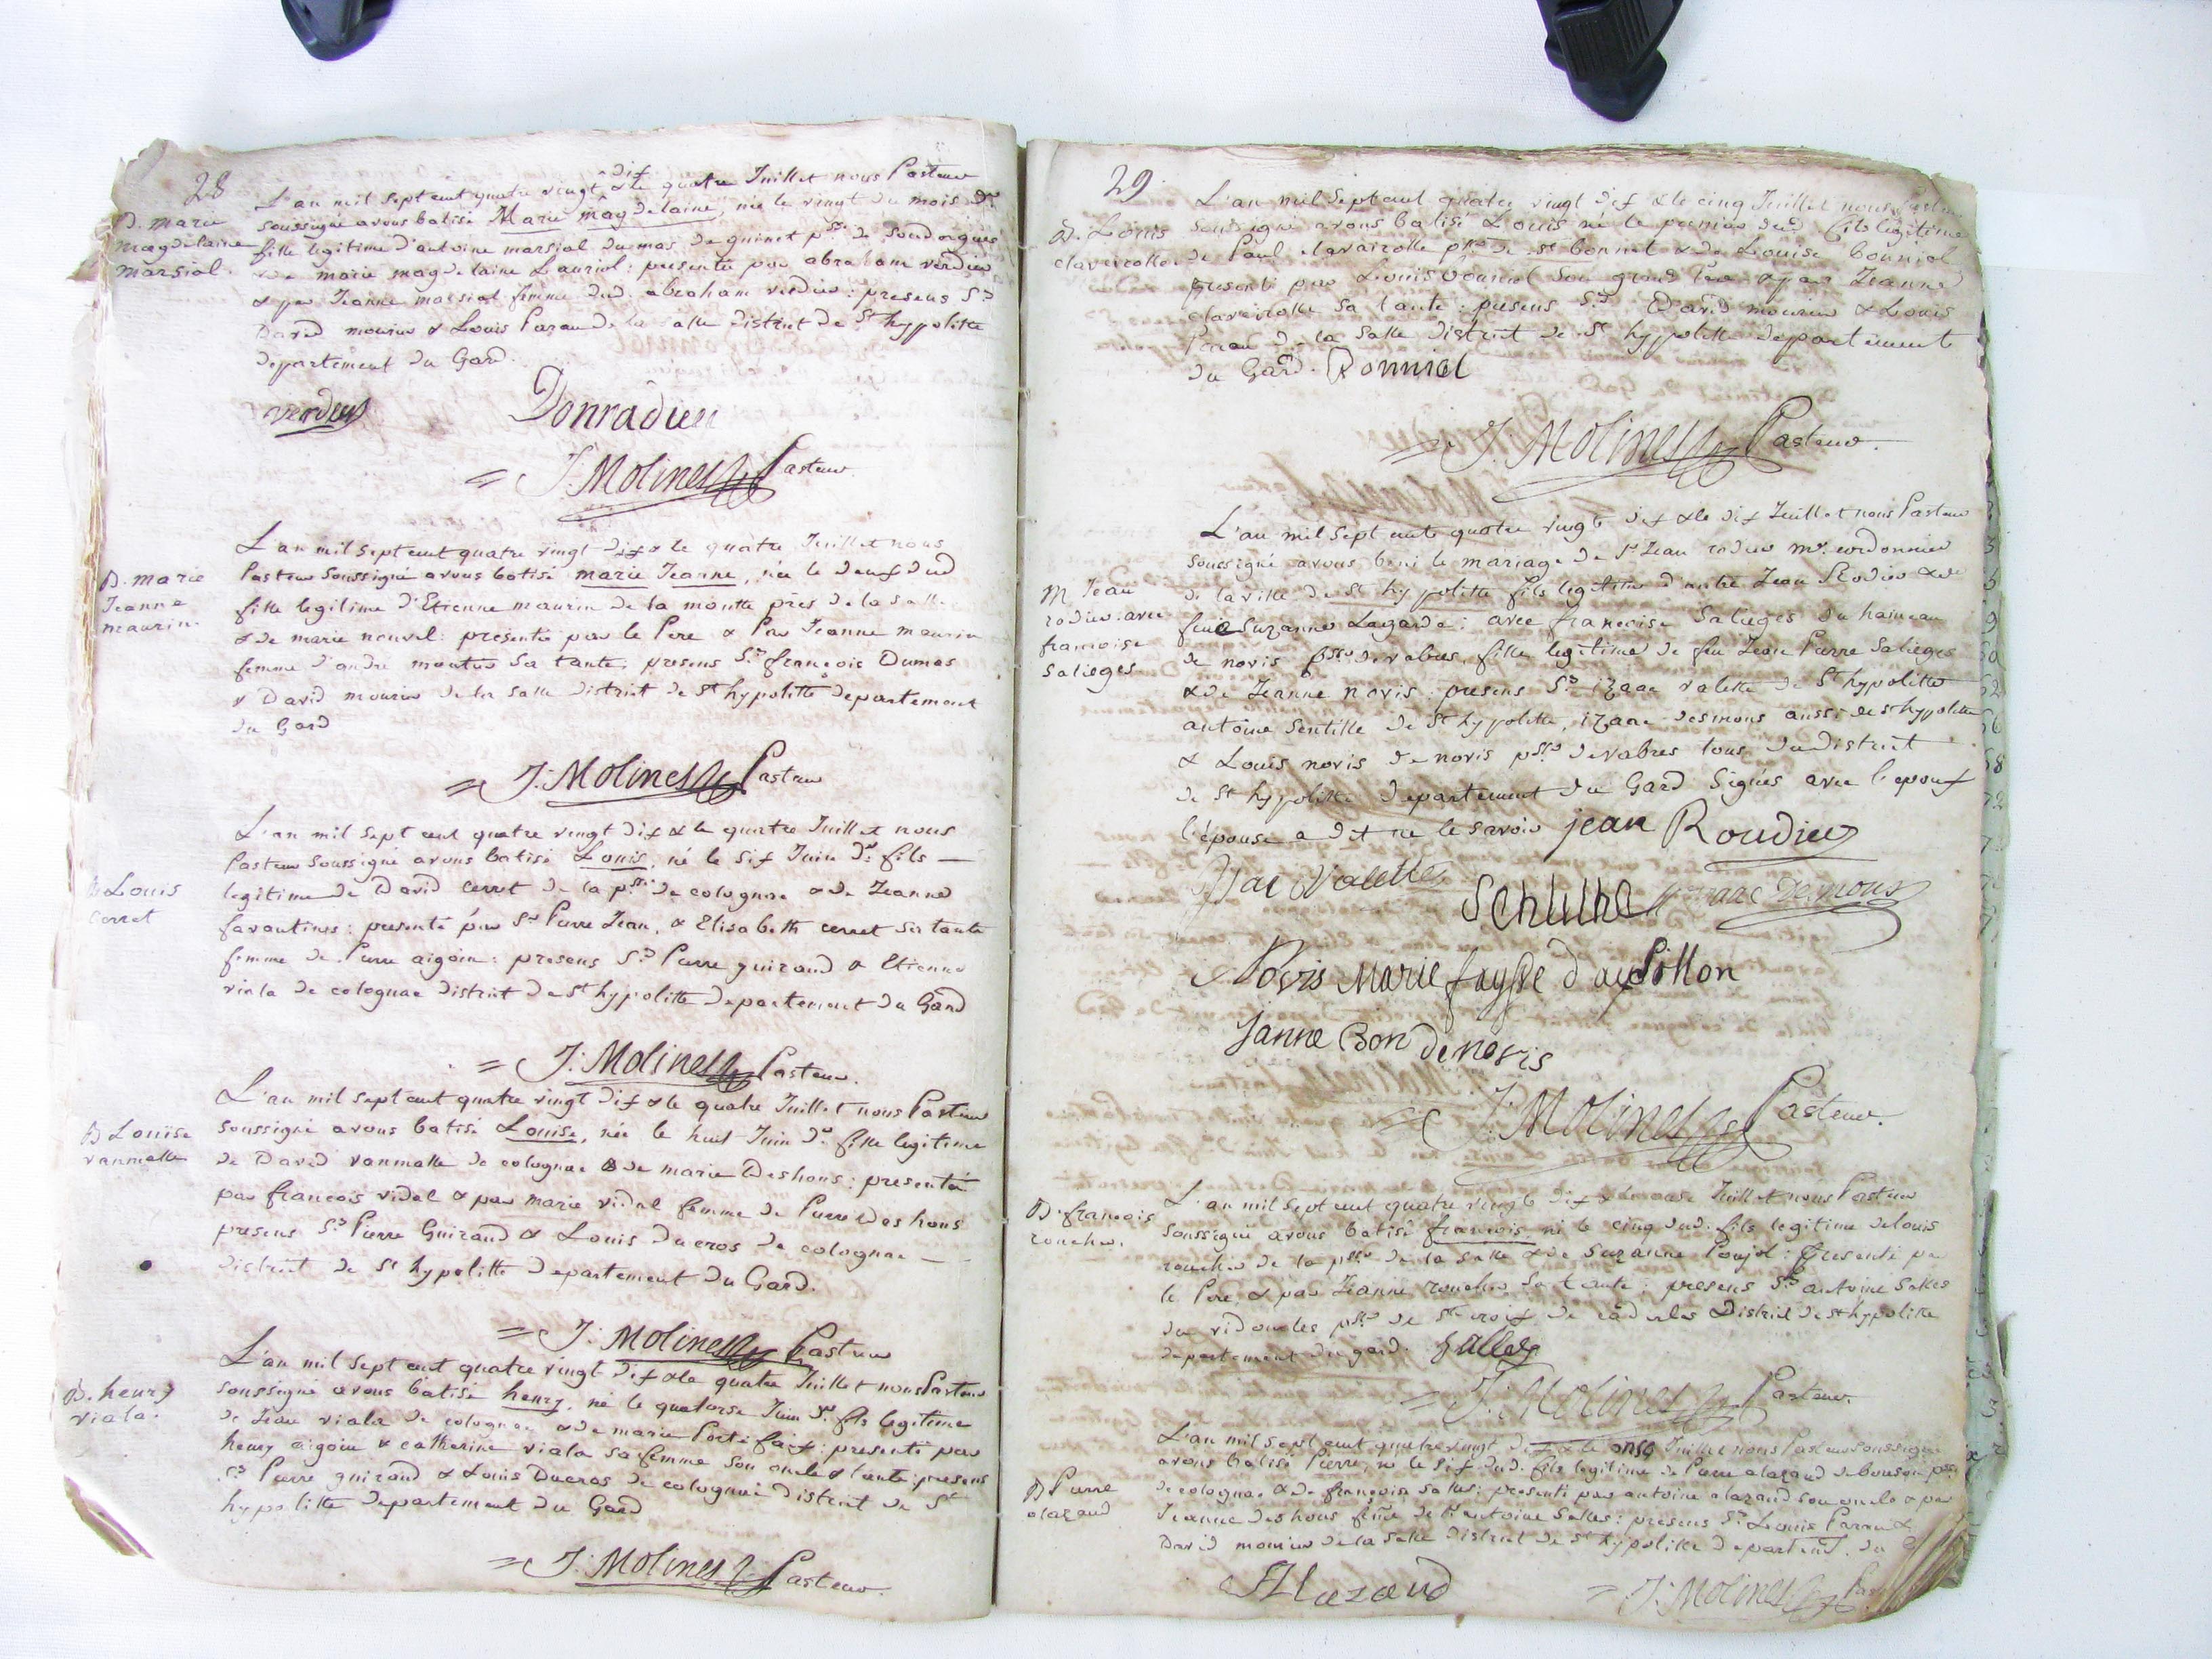 28
B. marie
magdelaine
marsial.
L'an mil sept cent quatre vingt dix & le quatre Juillet nous Pasteur
soussigné avons batisé Marie magdelaine, née le vingt du mois dr
fille legitime d'antoine marsial du mas de quinet psse de Soudorgues
& de marie magdelaine Lauriol: presentée par abraham verdier
& par Jeanne marsial femme dud. abraham verdier: presens Srs
David mourier & Louis Paran de la Salle district de St hypolitte
departement du Gard.
verdier Donradieu
= J: Molines Pasteur.
B. marie
Jeanne
maurin.
L'an mil sept cent quatre vingt dix & le quatre Juillet nous
Pasteur soussigné avons batisé marie Jeanne, née le deux dud
fille legitime d'Etienne maurin de la moutte près de la Salle
& de marie nouvel: presentée par le Pere & Par Jeanne maurin
femme d'andré sa tante: presens Srs françois Dumas
& David mourier de la Salle district de St hypolitte departement
du Gard
= J: Molines Pasteur
B. Louis
Cerret
L'an mil sept cent quatre vingt dix & le quatre Juillet nous
Pasteur soussigné avons batisé Louis, né le six Juin dr fils
legitime de David cerret de la psse de colognac & de Jeanne
favantines: presenté par Sr Pierre Jean, & Elisabeth cerret sa tante
femme de Pierre aigoin: presens Srs Pierre guiraud & Etienne
viala de colognac district de St hypolitte departement du Gard
= J: Molines Pasteur.
B Louise
vanmalle
L'an mil sept cent quatre vingt dix & le quatre Juillet nous Pasteur
soussigné avons batisé Louise, née le huit Juin dr fille legitime
de David vanmalle de colognac & de marie Deshons: presentée
par francois vidal & par marie vidal femme de Pierre Deshons
presens Srs Pierre Guiraud & Louis Ducros de colognac
district de St hypolitte departement du Gard.
= J: Molines Pasteur
B. henry
viala.
L'an mil sept cent quatre vingt dix & le quatre Juillet nous Pasteur
soussigné avons batisé henry, né le quatorse Juin dr fils legitime
de Jean viala de colognac & de marie Portefaix: presenté par
henry aigoin & catherine viala sa femme son oncle & tante: presens
Srs Pierre guiraud & Louis Ducros de colognac district de St
hypolitte departement du Gard
= J: Molines Pasteur.
29.
B. Louis
claveirolle
L'an mil sept cent quatre vingt dix & le cinq Juillet nous Pasteur
soussigné avons batisé Louis né le premier dud fils legitime
de Paul claveirolle psse de St bonnet & de Louise Bouniol
presenté par Louis Bouniol son grand Pere & par Jeanne
claveirolle sa tante: presens Srs David mourier & Louis
Paran de la Salle district de St hypolitte departement
du Gard. Bouniol
= J: Molines Pasteur.
M Jean
rodier avec
francoise
Salieges
L'an mil sept cent quatre vingt dix & le dix Juillet nous Pasteur
soussigné avons beni le mariage de Sr Jean rodier mr cordonnier
de la ville de St hypolitte fils legitime d'autre Jean Rodier & de
feue Suzanne Lagarde: avec francoise Salieges du hameau
de novis psse de vabres, fille legitime de feu Jean Pierre Salieges
& de Jeanne novis: presens Srs izaac valette de St hypolitte
antoine Sentille de St hypolitte, izaac desmons aussi de St hypolitte
& Louis novis de novis psse de vabres tous du district
de St hypolitte departement du Gard Signés avec l'epoux
l'épouse a dit ne le savoir jean Roudier
Isac Valette Sentilhe isaac Desmons
Novis Marie faysse d'aussillon
Janne Bon de novis
= J: Molines Pasteur.
B. francois
roucher.
L'an mil sept cent quatre vingt dix & le onse Juillet nous Pasteur
soussigné avons batisé francois né le cinq dud. fils legitime de louis
roucher de la psse de la Salle & de Suzanne Poujol: presenté par
le Pere, & par Jeanne roucher sa tante: presens Srs antoine Salles
psse de Ste croix de caderles District de St hypolitte
departement du gard. Salles
= J: Molines Pasteur.
B Pierre
alazaud
L'an mil sept cent quatre vingt dix & le onse Juillet nous Pasteur soussigné
avons batisé Pierre, né le six dud. fils legitime de Pierre alazaud psse
de colognac & de françoise salles: presenté par antoine alazaud son oncle & par
Jeanne deshons feme de Sr antoine Salles: presens Srs Louis Paran &
David mourier de la Salle district de St hypolitte departent. du
Alazaud = J: Molines Past